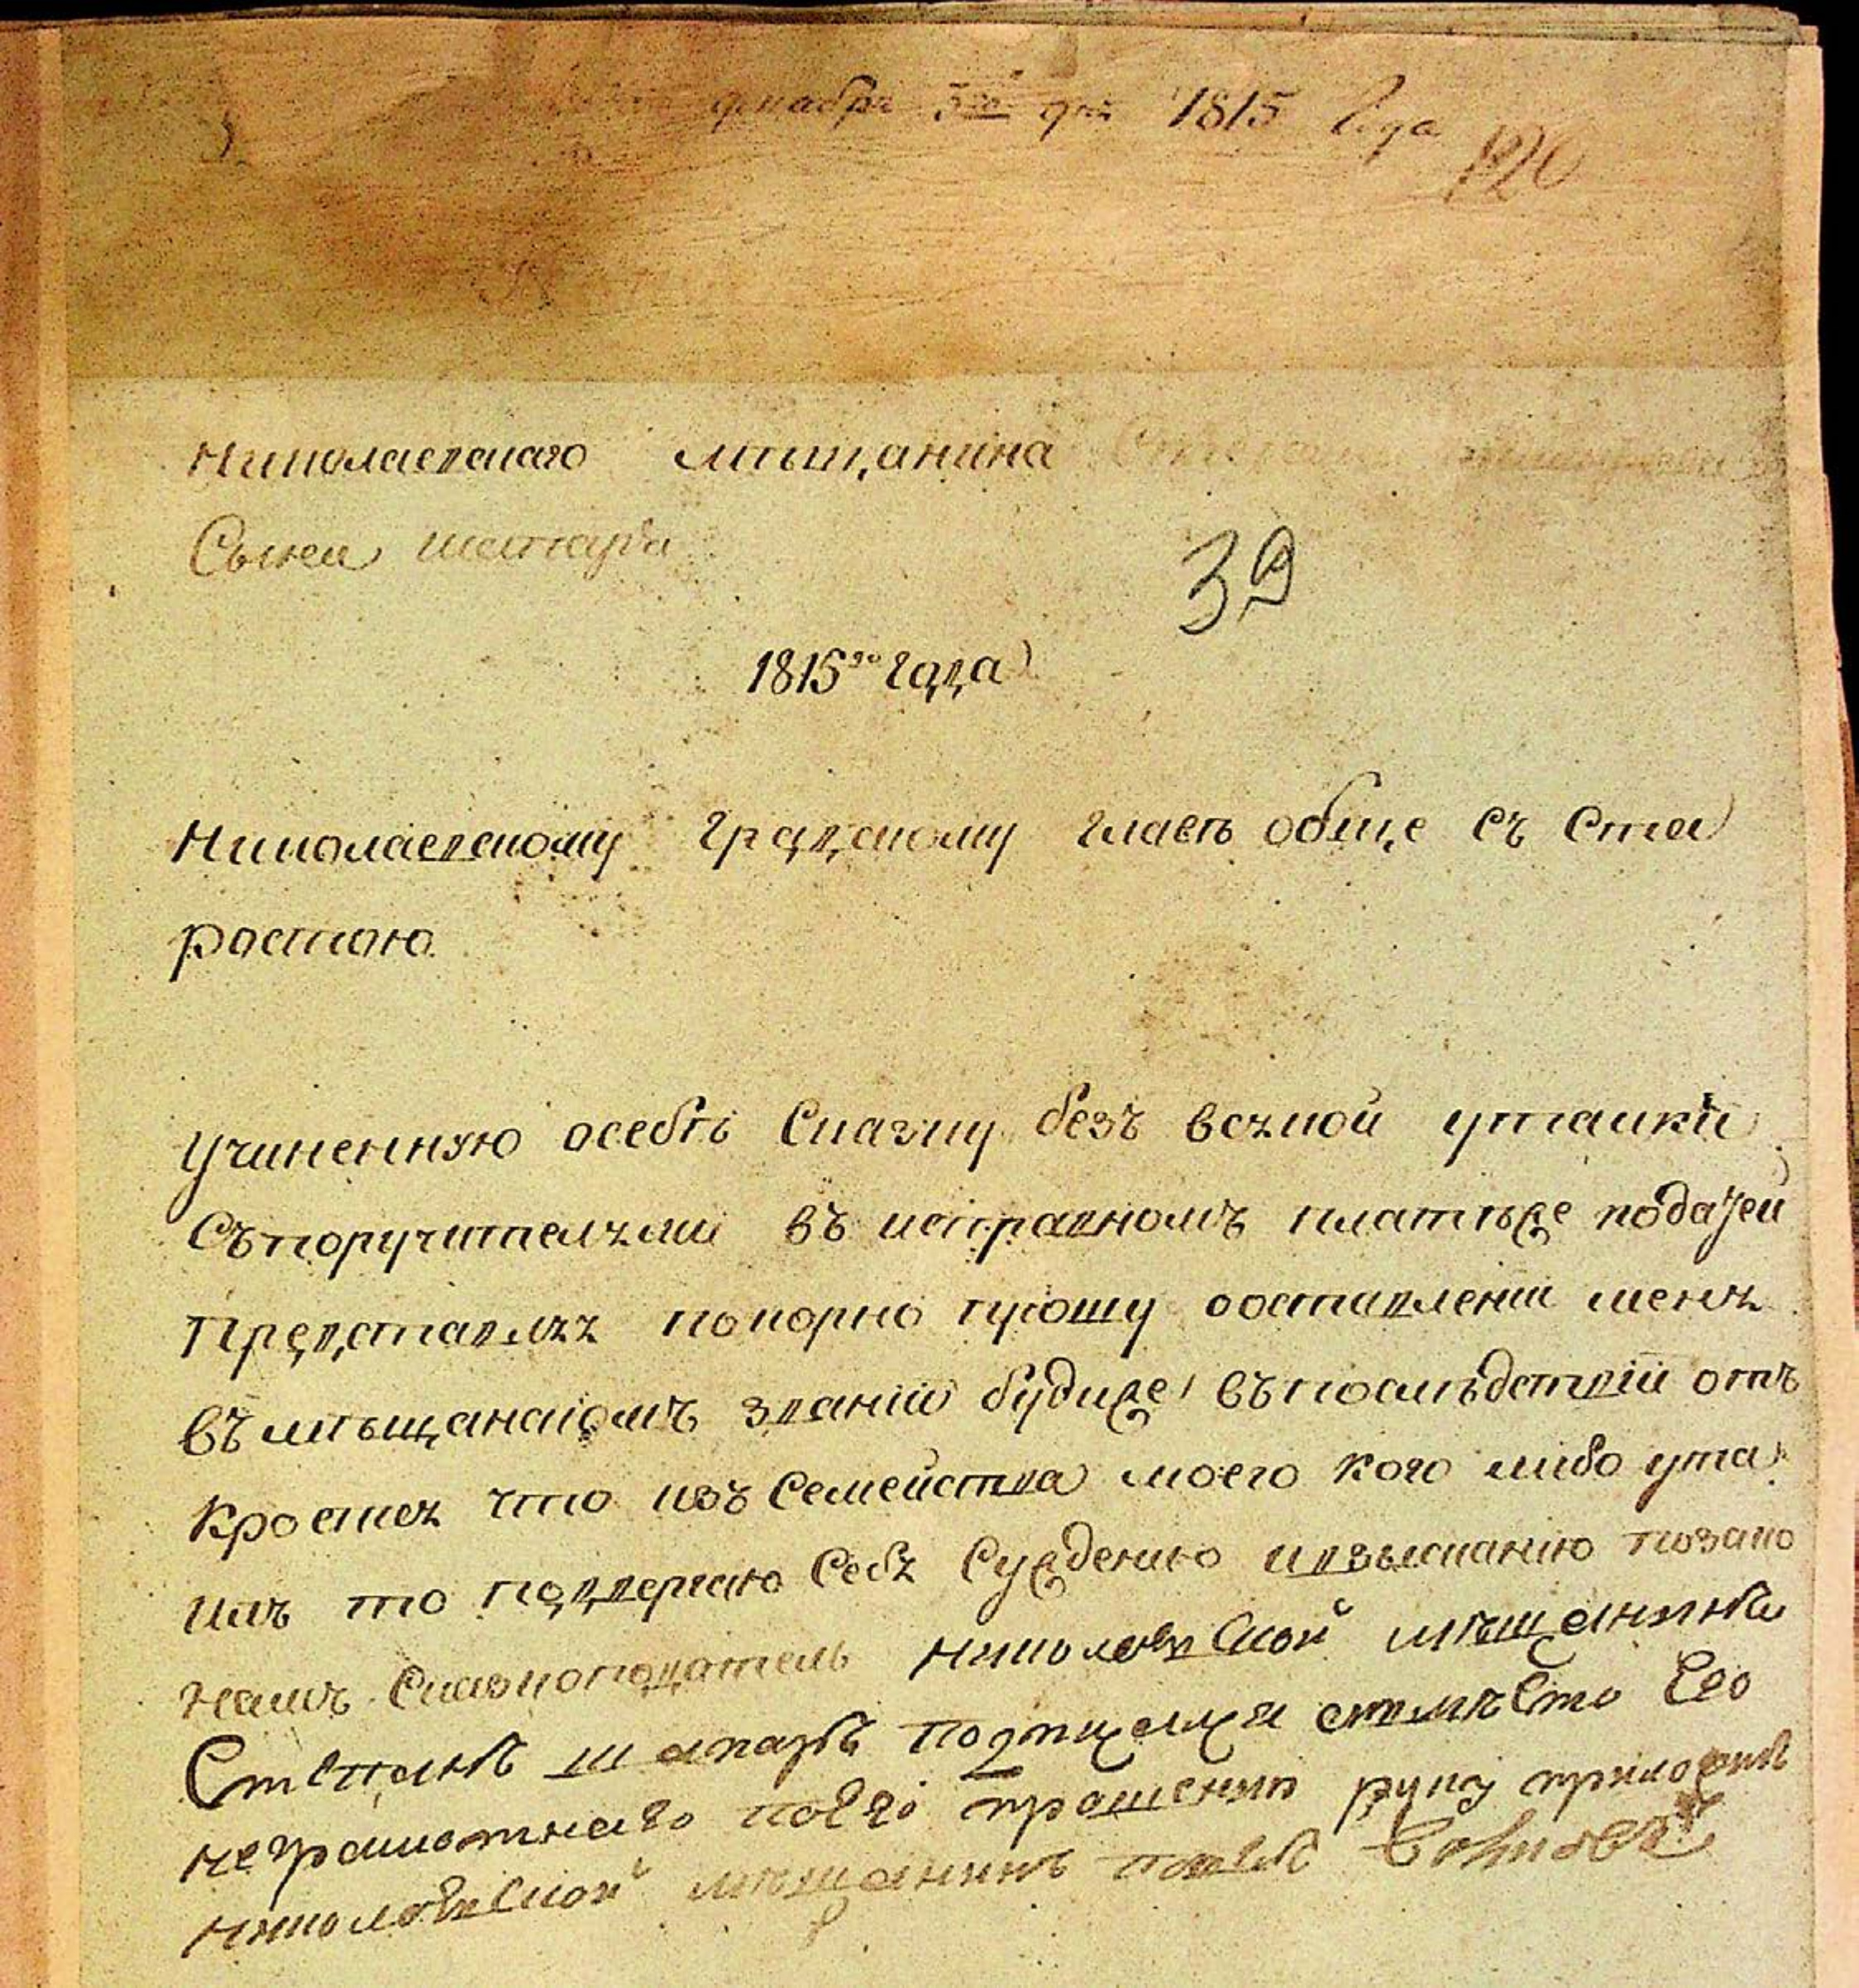 декабря 3го дня 1815 Года
120
Николаевскаго мѣщанина
Сына шепаря
39
1815го Года
Николаевскому градскому главѣ обще съ Ста
ростою
Учиненную осебѣ Сказку безъ всякой утайки
Съпоручителями въ исправномъ платѣже податей
Представляя покорно прошу обоставленіи меня
въмѣщанскомъ званіи будиже въпослѣдствіи отъ
кроется что изъ Семейства моего кого либо ута
илъ то подвергаю Себя Сужденію ивзысканію позако
намъ Сказкоподатель николаевской мѣщанинъ
Степанъ подписался авмѣсто Его
неграмотнаго поЕго прошению руку приложилъ
николаевской мѣщанинъ